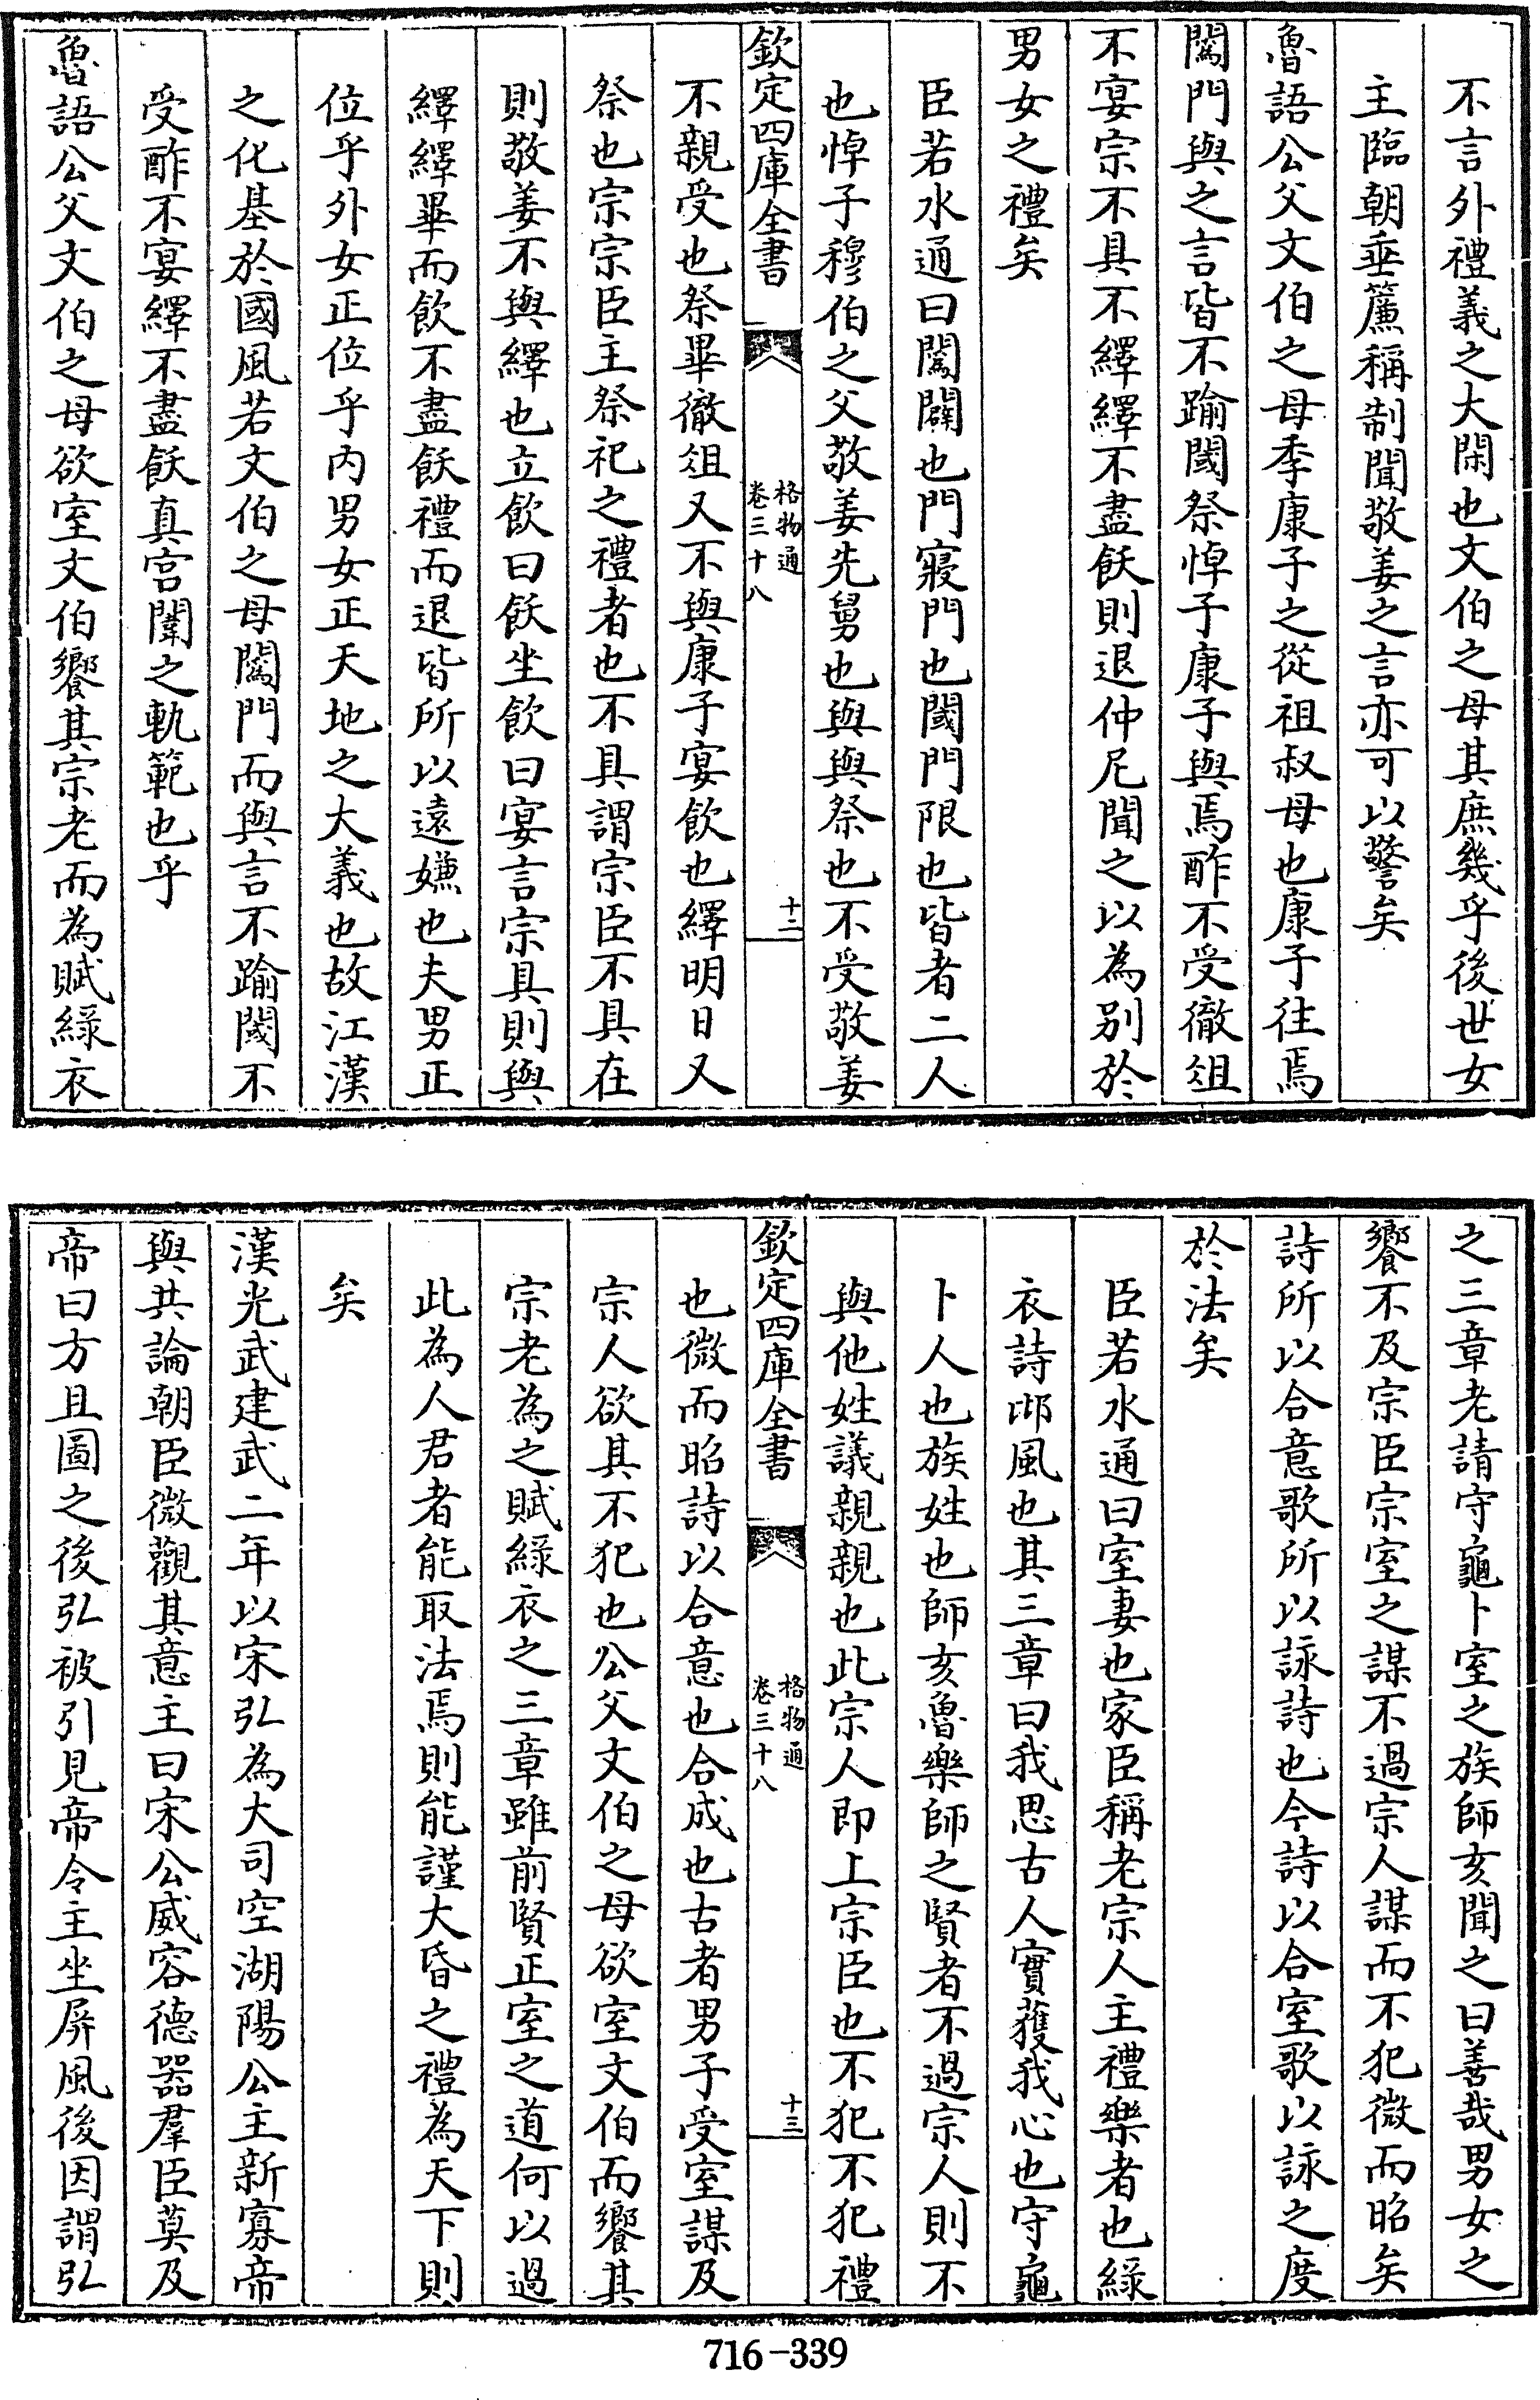 不言外禮義之大閑也文伯之母其庶幾乎後世女
主臨朝垂簾稱制聞敬姜之言亦可以警矣
魯語公父文伯之母季康子之從祖叔母也康子往焉
闖門與之言皆不踰閾祭悼子康子與焉酢不受徹俎
不宴宗不具不繹繹不盡飫則退仲尼聞之以為別於
男女之禮矣
臣若水通曰闖闢也門寢門也閾門限也皆者二人
也悼子穆伯之父敬姜先舅也與與祭也不受敬姜
欽定四庫全書
格物通
卷三十八
十二
不親受也祭畢徹俎又不與康子宴飲也繹明日又
祭也宗宗臣主祭祀之禮者也不具謂宗臣不具在
則敬姜不與繹也立飲曰飫坐飲曰宴言宗具則與
繹繹畢而飲不盡飫禮而退皆所以遠嫌也夫男正
位乎外女正位乎内男女正天地之大義也故江漢
之化基於國風若文伯之母闖門而與言不踰閾不
受酢不宴繹不盡飫真宮闈之軌範也乎
魯語公父文伯之母欲室文伯饗其宗老而為賦綠衣
之三章老請守龜卜室之族師亥聞之曰善哉男女之
饗不及宗臣宗室之謀不過宗人謀而不犯微而昭矣
詩所以合意歌所以詠詩也今詩以合室歌以詠之度
於法矣
臣若水通曰室妻也家臣稱老宗人主禮樂者也綠
衣詩邶風也其三章曰我思古人實獲我心也守龜
卜人也族姓也師亥魯樂師之賢者不過宗人則不
與他姓議親親也此宗人即上宗臣也不犯不犯禮
欽定四庫全書
格物通
卷三十八
十三
也微而昭詩以合意也合成也古者男子受室謀及
宗人欲其不犯也公父文伯之母欲室文伯而饗其
宗老為之賦綠衣之三章雖前賢正室之道何以過
此為人君者能取法焉則能謹大昏之禮為天下則
矣
漢光武建武二年以宋弘為大司空湖陽公主新寡帝
與共論朝臣微觀其意主曰宋公威容德器羣臣莫及
帝曰方且圖之後弘被引見帝令主坐屏風後因謂弘
716-339